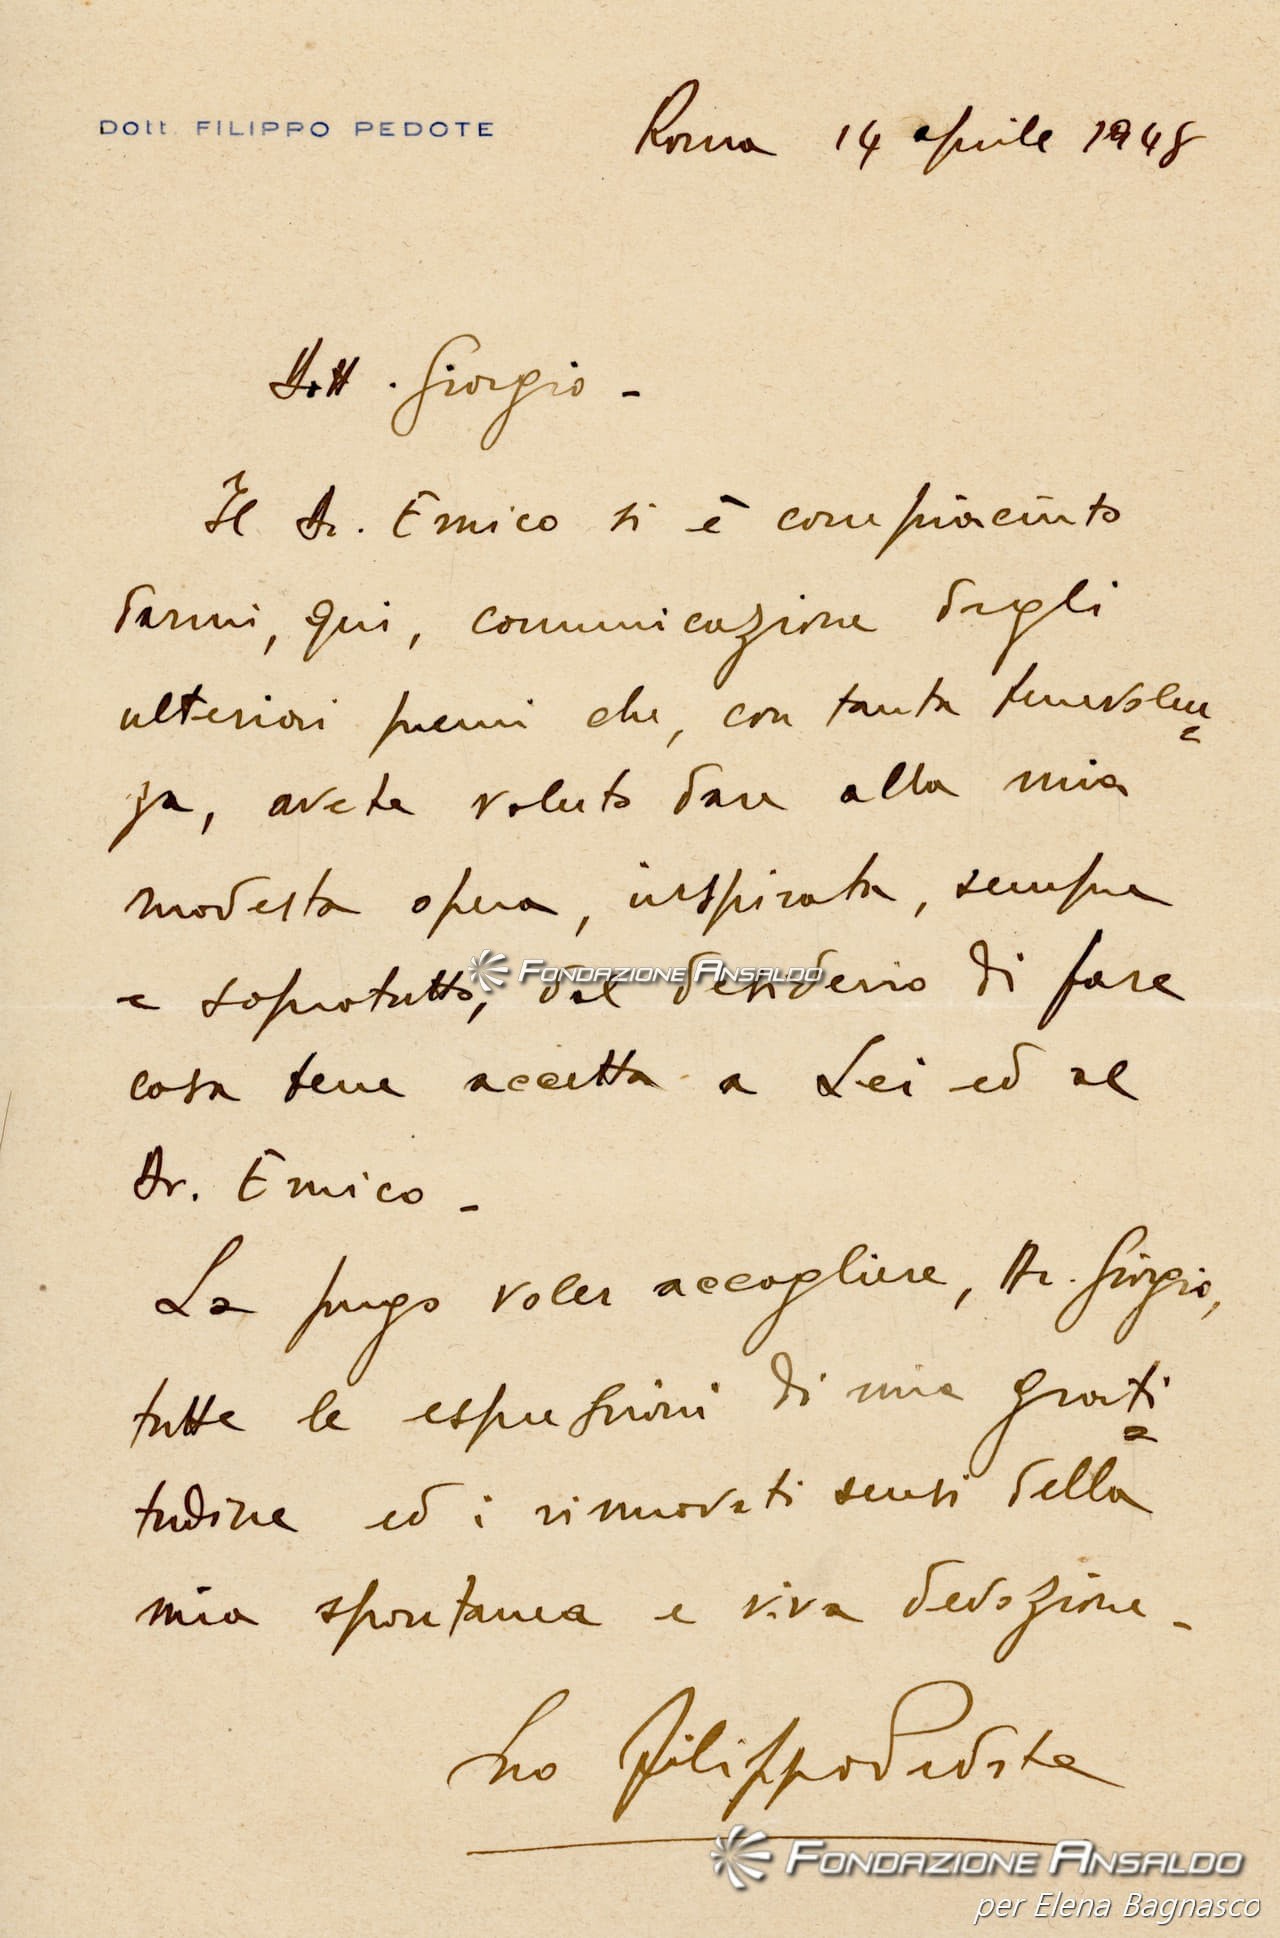 Dott. FILIPPO PEDOTE
Roma 14 aprile 1948
Dott. Giorgio -
Il Dr. Enrico si è compiaciuto
darmi, qui, comunicazione degli
ulteriori premi che, con tanta benevolen
za, avete voluto dare alla mia
modesta opera, inspirata, sempre
e sopratutto, dal desiderio di fare
cosa bene accetta a Lei ed al
Dr. Enrico -
La prego voler accogliere, Dr. Giorgio,
tutte le espressioni di mia grati
tudine ed i rinnovati sensi della
mia spontanea e viva devozione -
Suo Filippo Pedote
FONDAZIONE ANSALDO
FONDAZIONE ANSALDO
per Elena Bagnasco